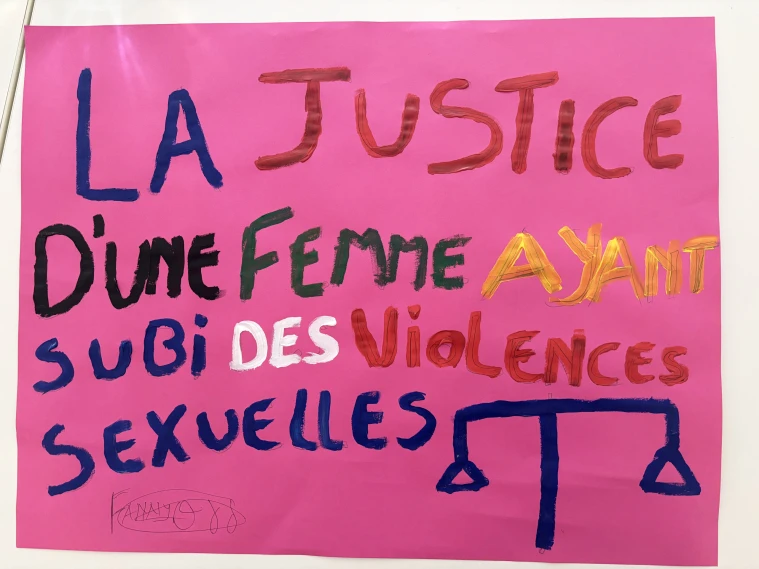 LA JUSTICE
D'UNE FEMME AYANT
SUBi DES ViOLENCES
SEXUELLES